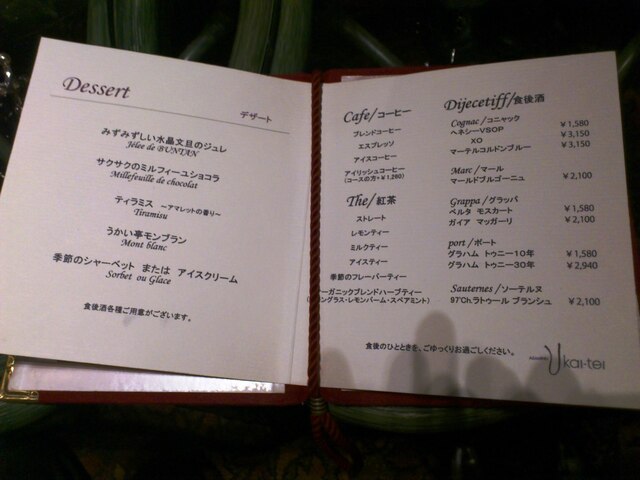 Dessert
デザート
みずみずしい水晶文旦のジュレ
Jélee de BUNTAN
サクサクのミルフィーユショコラ
Millefeuille de chocolat
ティラミス ～アマレットの香り～
Tiramisu
うかい亭モンブラン
Mont blanc
季節のシャーベット または アイスクリーム
Sorbet ou Glace
食後酒各種ご用意がございます。
Cafe/コーヒー
ブレンドコーヒー
エスプレッソ
アイスコーヒー
アイリッシュコーヒー
(コースの方+¥1,260)
The/紅茶
ストレート
レモンティー
ミルクティー
アイスティー
季節のフレーバーティー
ーガニックブレンドハーブティー
ングラス・レモンバーム・スペアミント)
Dijecetiff/食後酒
Cognac/コニャック
ヘネシーVSOP ¥1,580
XO ¥3,150
マーテルコルドンブルー ¥3,150
Marc/マール
マールドブルゴーニュ ¥2,100
Grappa/グラッパ
ベルタ モスカート ¥1,580
ガイア マッガーリ ¥2,100
port/ポート
グラハム トゥニー10年 ¥1,580
グラハム トゥニー30年 ¥2,940
Sauternes/ソーテルヌ
97'Ch.ラトゥール ブランシュ ¥2,100
食後のひとときを、ごゆっくりお過ごしください。
Ukai-tei